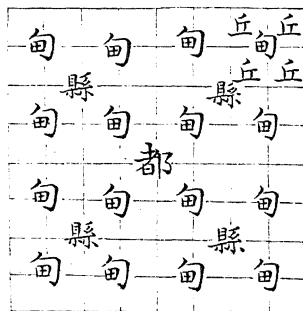 丘 丘
甸 甸 甸 甸
丘 丘
縣 縣
甸 甸 甸 甸
都
甸 甸 甸 甸
縣 縣
甸 甸 甸 甸